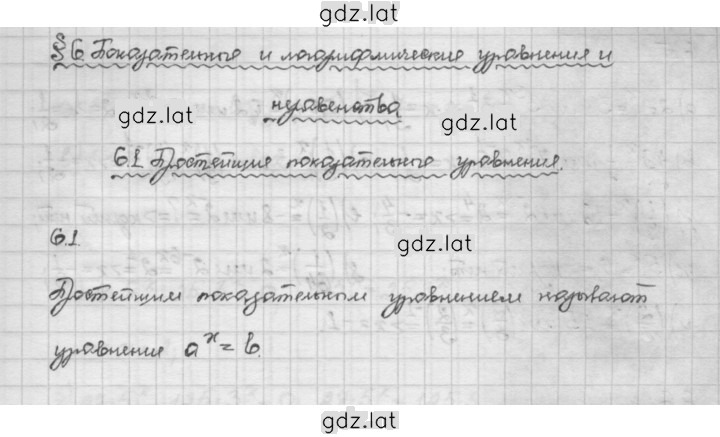 gdz.lat
§ 6. Показательные и логарифмические уравнения и
неравенства
gdz.lat
gdz.lat
6.1 Простейшие показательные уравнения.
6.1.
gdz.lat
Простейшим показательным уравнением называют
уравнение aˣ = b.
gdz.lat